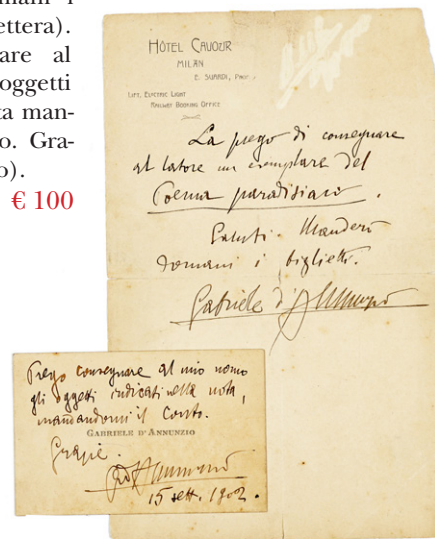 mani i
ettera).
are al
oggetti
ta man-
o. Gra-
o).
€ 100
HÔTEL CAVOUR
MILAN
E. SUARDI, Prop.
LIFT, ELECTRIC LIGHT
RAILWAY BOOKING OFFICE
La prego di consegnare
al latore un esemplare del
Poema paradisiaco.
Saluti. Manderò
domani i biglietti.
Gabriele d'Annunzio
Prego consegnare al mio nome
gli oggetti indicati nella nota,
mandandomi il conto.
GABRIELE D'ANNUNZIO
Grazie.
GdAnnunzio
15 sett. 1902.